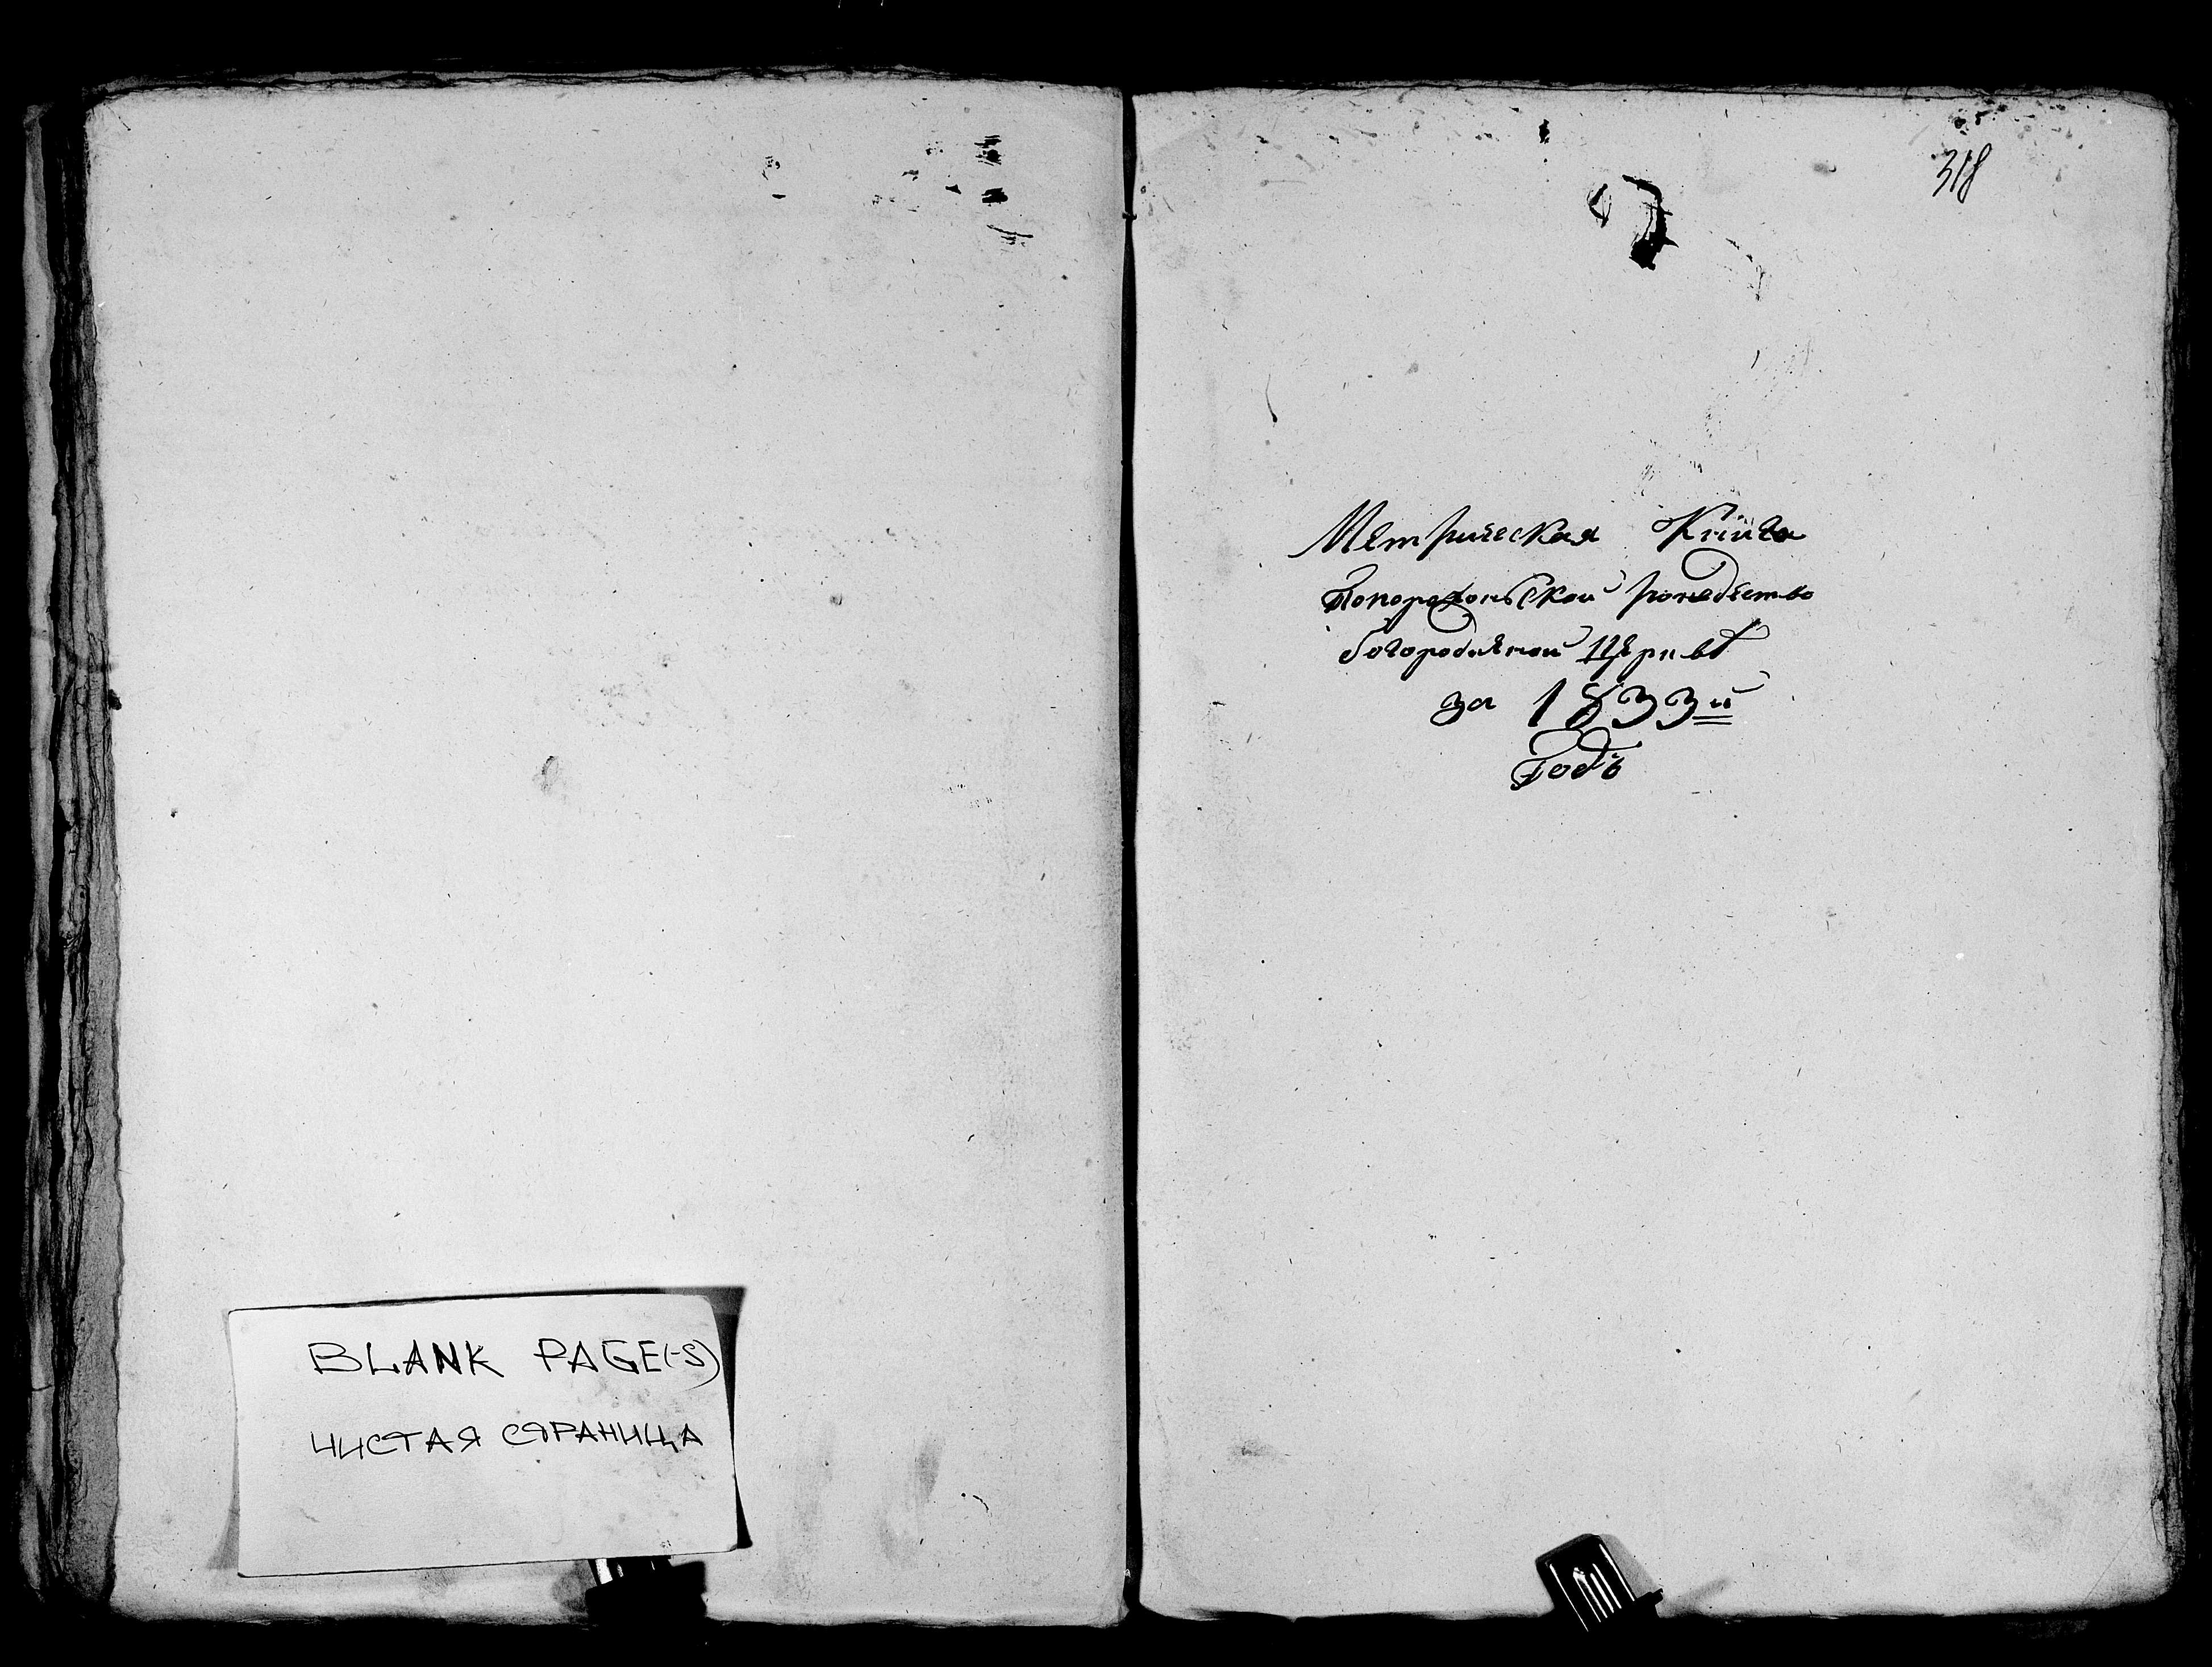 BLANK PAGE(-S)
ЧИСТАЯ СТРАНИЦА
318
Метрическая Книга
рождество
богородичной Церквѣ
за 1833й
Годъ